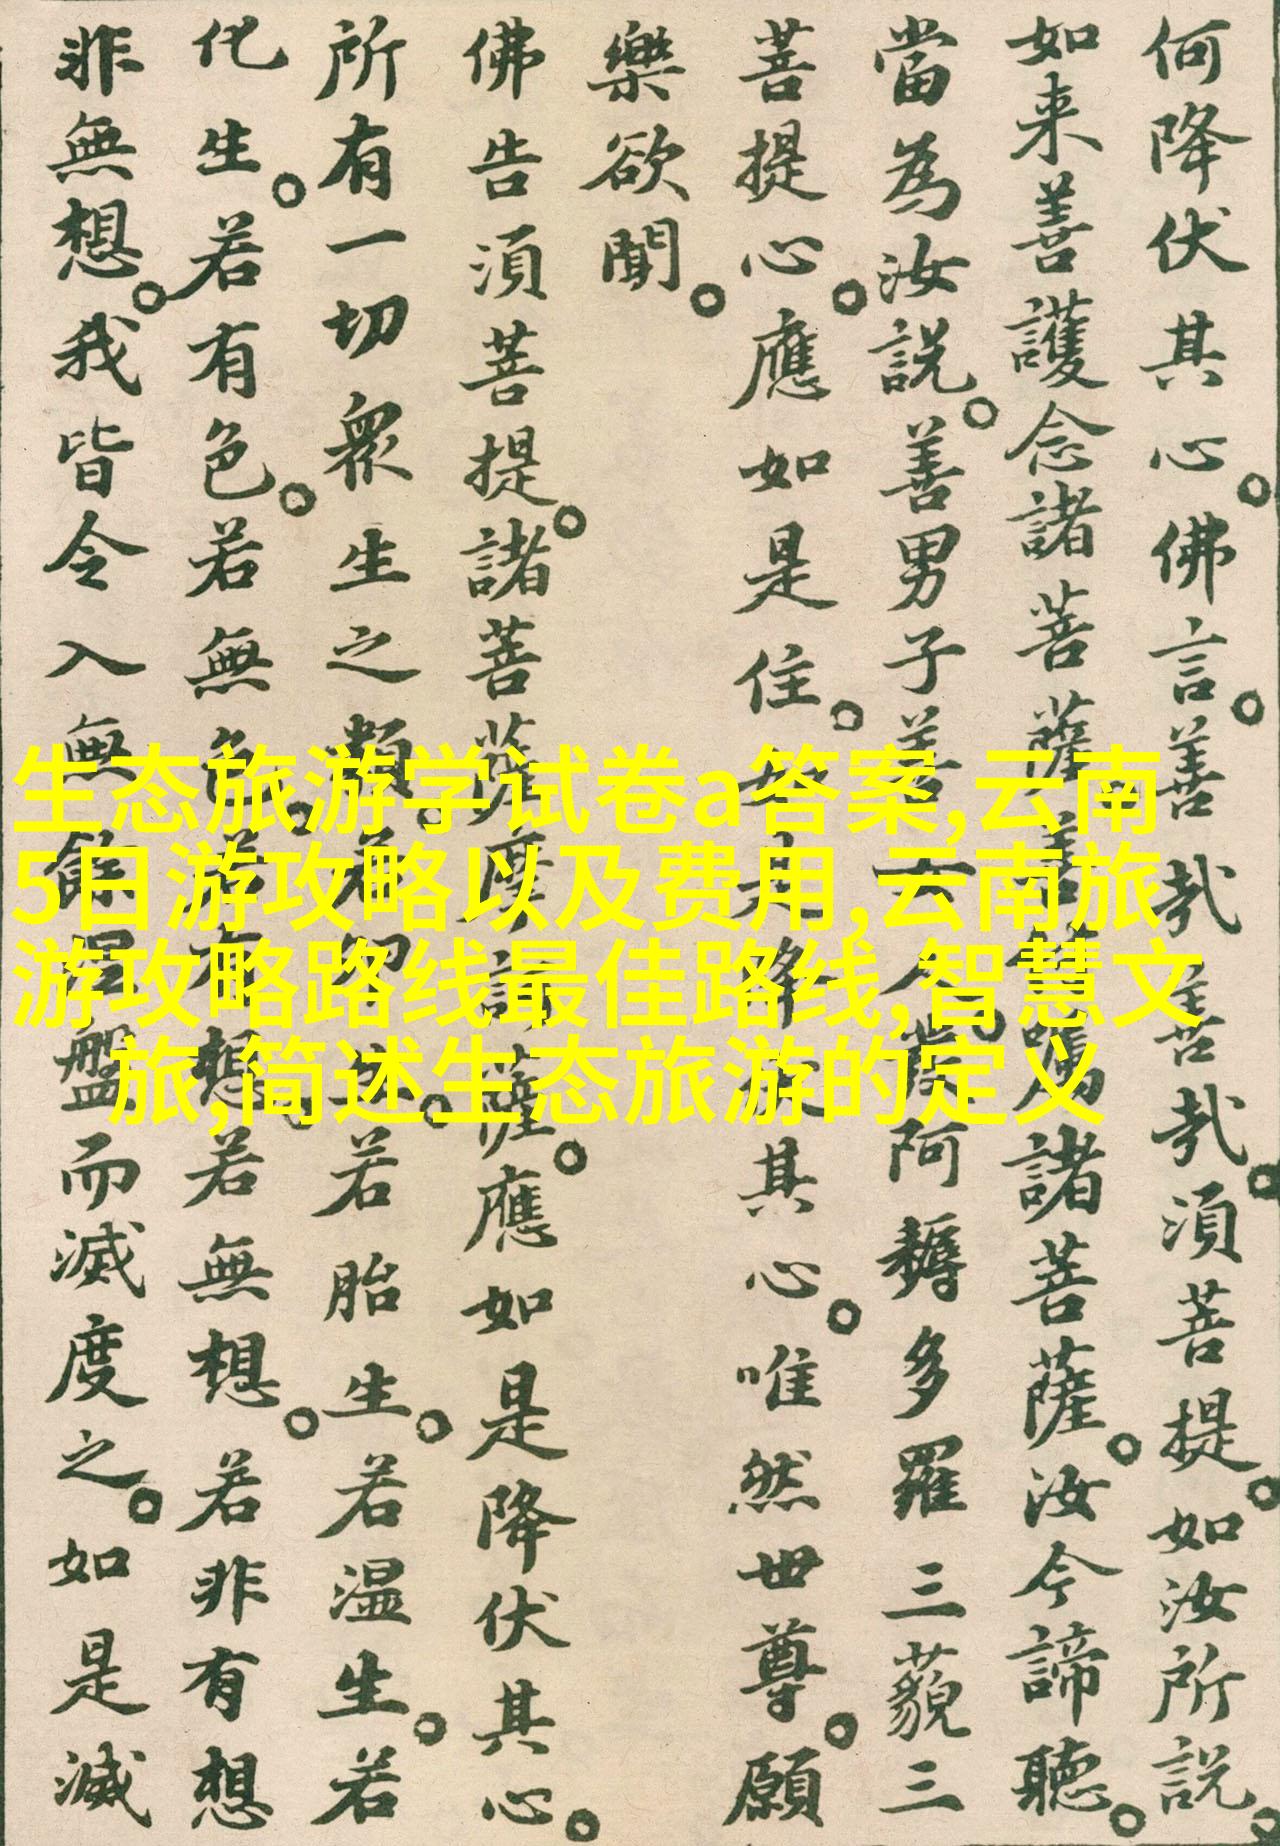 何降伏其心。佛言。善哉善哉。須菩提。如汝所説。
如来善護念諸菩薩善付囑諸菩薩。汝今諦聽。
當為汝説。善男子善女人。發阿耨多羅三藐三
菩提心。應如是住。如是降伏其心。唯然世尊。願
樂欲聞。
佛告須菩提。諸菩薩摩訶薩。應如是降伏其心。
所有一切眾生之類。若卵生。若胎生。若温生。若
化生。若有色。若無色。若有想。若無想。若非有想
非無想。我皆令入無餘涅盤而滅度之。如是滅
生态旅游学试卷a答案,云南
5日游攻略以及费用,云南旅
游攻略路线最佳路线,智慧文
旅,简述生态旅游的定义